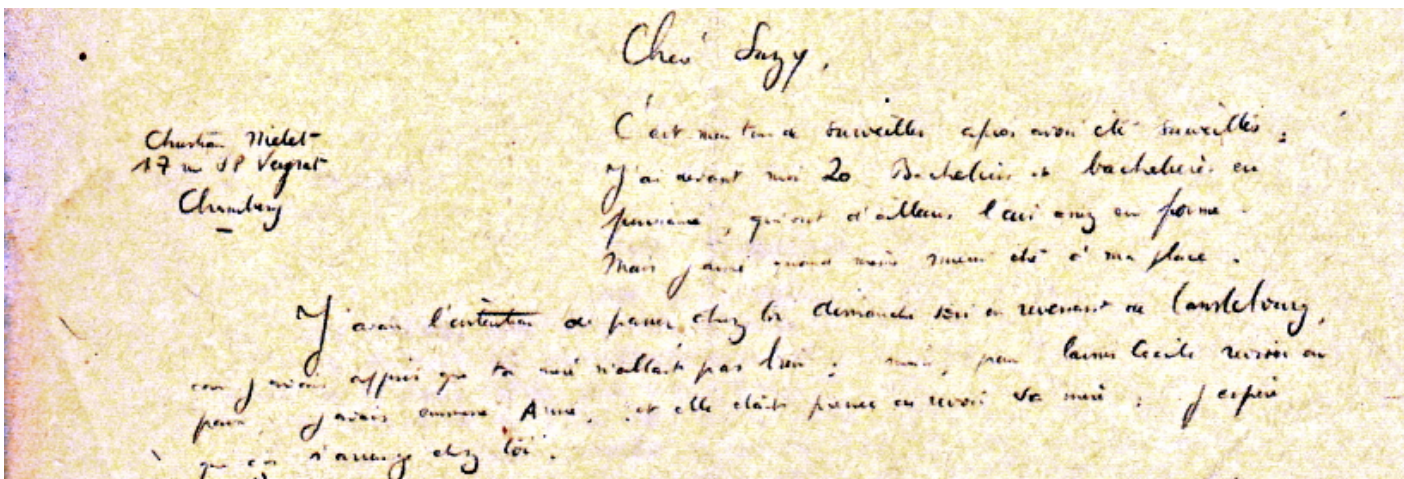 Chère Suzy,
Christian Mielet
17 rue JP Veyrat
Chambéry
C'est mon tour de surveiller après avoir été surveillés ;
J'ai devant moi 20 Bacheliers et bachelières en
puissance, qui ont d'ailleurs l'air assez en forme.
Mais j'aime quand même mieux été à ma place.
J'avais l'intention de passer chez toi dimanche soir en revenant de Lanslebourg,
car j'avais appris que ta mère n'allait pas bien ; mais, pour laisser Cécile reviser en
paix, j'avais emmené Anne, et elle était pressée de revoir sa mère ; j'espère
que ça s'arrange chez toi.